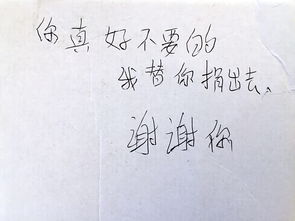 你真好不要的
我替你捐出去、
谢谢你